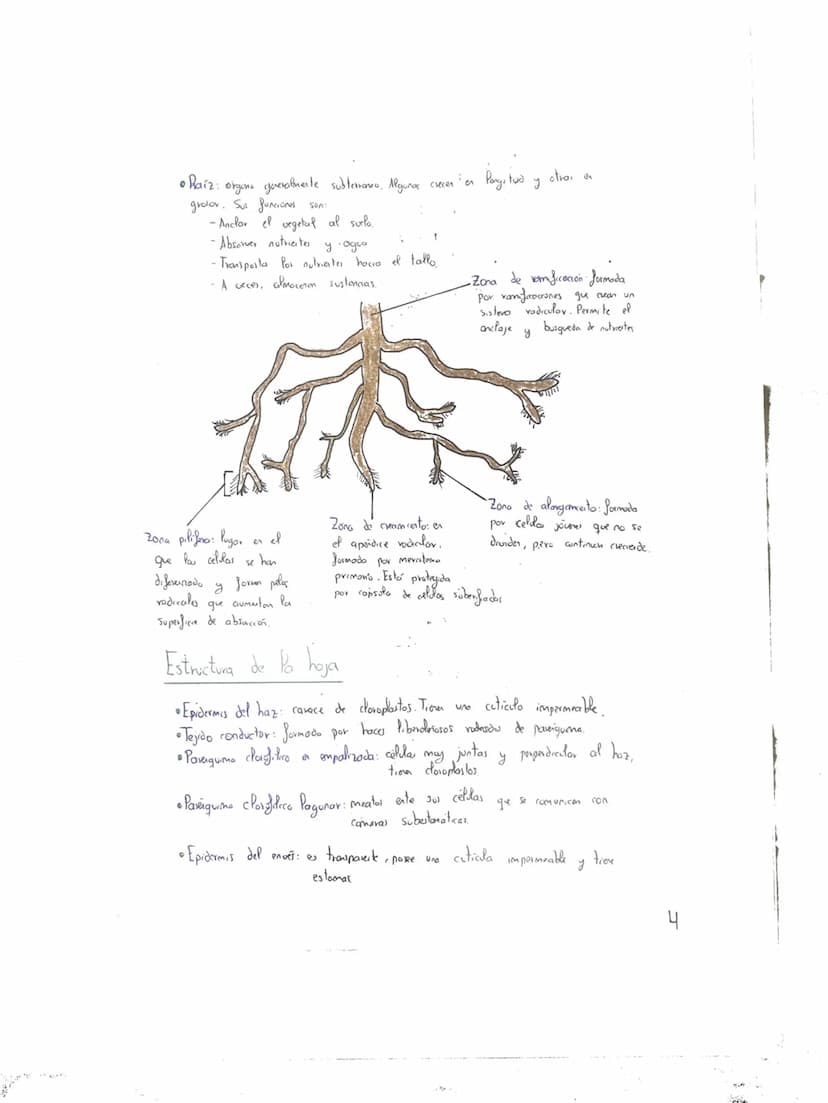 • Raíz: órgano generalmente subterraneo. Algunas crecen en longitud y otras en
grosor. Sus funciones son:
- Anclar el vegetal al suelo.
- Absorver nutrientes y agua
- Transporta los nutrientes hacia el tallo.
- A veces, almacenan sustancias.
Zona de ramificación: formada
por ramificaciones que crean un
sistema radicular. Permite el
anclaje y busqueda de nutrientes
Zona de alargamiento: formada
por celdas jóvenes que no se
dividen, pero continuan creciendo.
Zona de crecimiento: en
el apéndice radicular.
formado por meristemo
primario. Está protegida
por capsula de células suberificadas
Zona pilífera: lugar en el
que las celdas se han
diferenciado y forman pelos
radicales que aumentan la
superficie de absorción.
Estructura de la hoja
• Epidermis del haz: carece de cloroplastos. Tienen una cutícula impermeable.
• Tejido conductor: formado por haces liberoleñosos rodeados de parénquima.
• Parénquima clorofílico en empalizada: célula muy juntas y perpendicular al haz,
tienen cloroplastos
• Parénquima clorofílico lagunar: meatos ente sus células que se comunican con
cámaras subestomáticas.
• Epidermis del envés: es transparente, posee una cutícula impermeable y tiene
estomas
4